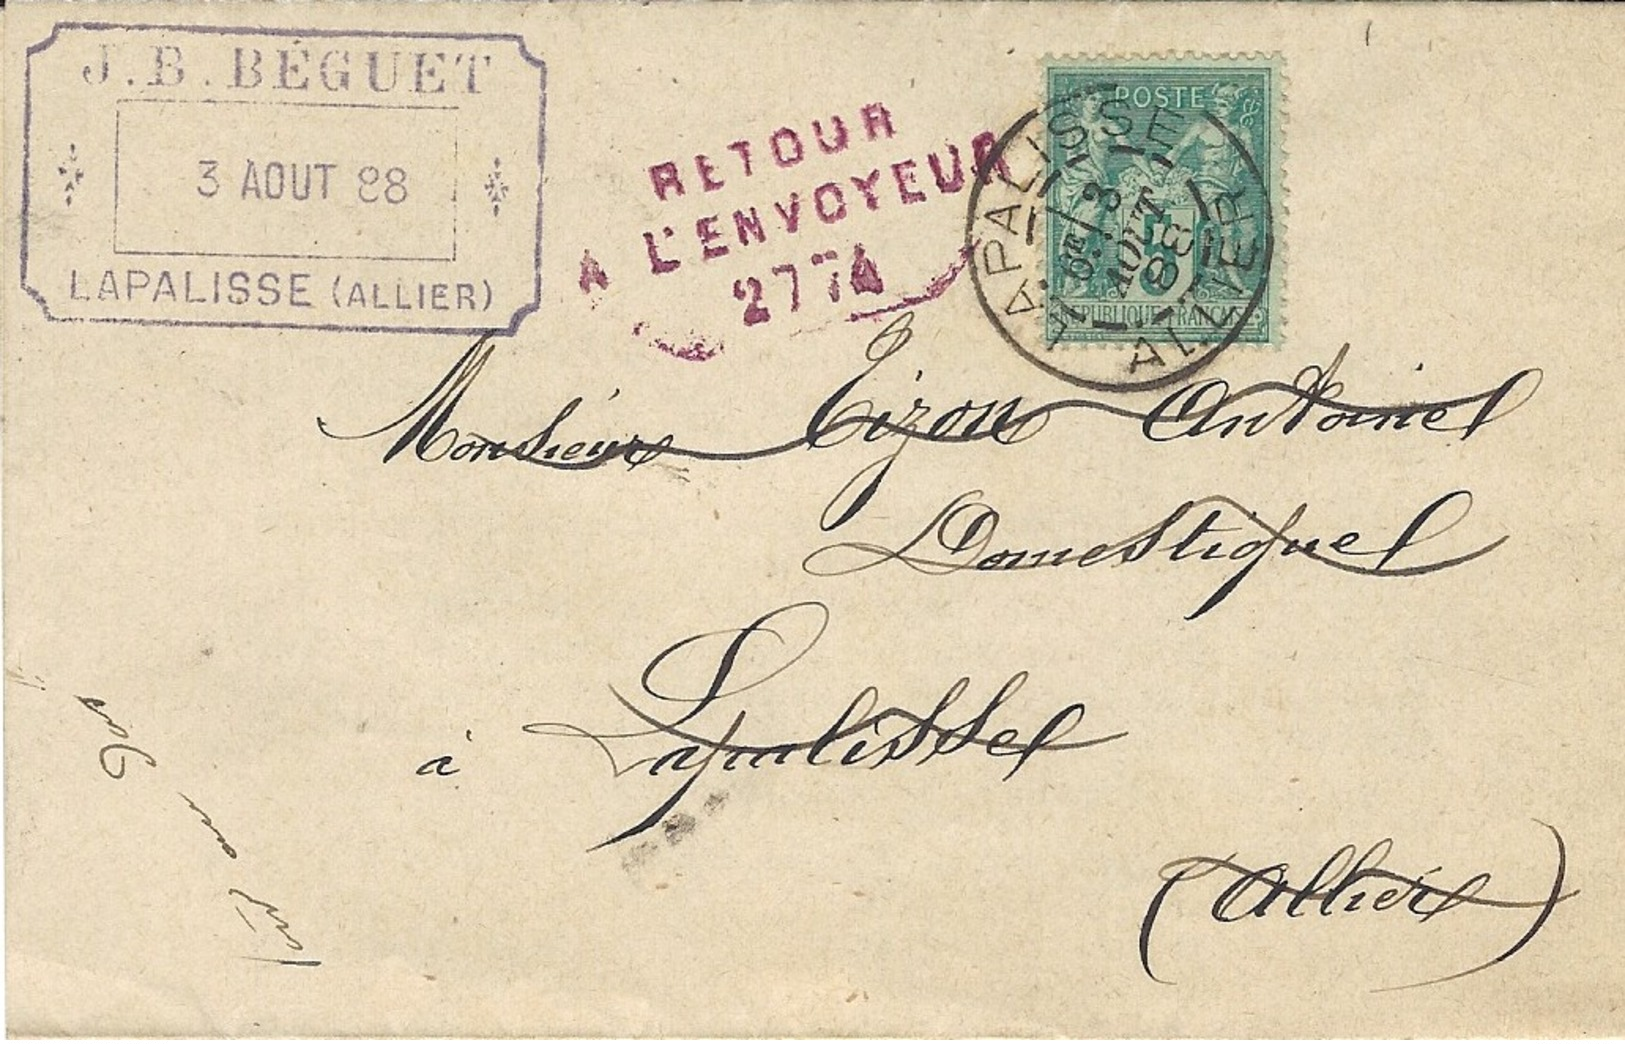 J. B. BÉGUET
3 AOUT 88
LAPALISSE (ALLIER)
RETOUR
A L'ENVOYEUR
2774
POSTE
5
REPUBLIQUE FRANCAISE
LAPALISSE
3
AOUT
88
ALLIER
Monsieur Tizon Antoine
Domestique
à Lapalisse
(Allier)